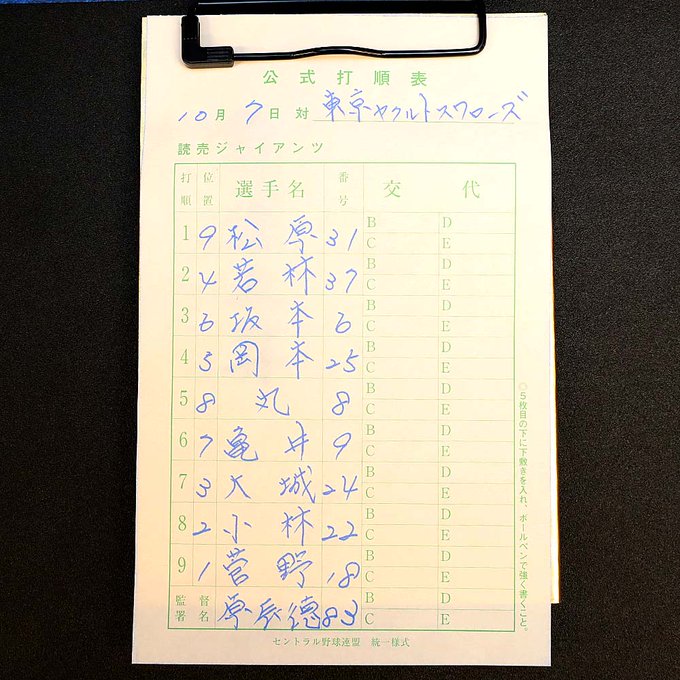 公式打順表
10月7日 対 東京ヤクルトスワローズ
読売ジャイアンツ
打順 位置 選手名 番号 交代
1 9 松原 31 B D C E
2 4 若林 37 B D C E
3 6 坂本 6 B D C E
4 5 岡本 25 B D C E
5 8 丸 8 B D C E
6 7 亀井 9 B D C E
7 3 大城 24 B D C E
8 2 小林 22 B D C E
9 1 菅野 18 B D C E
監督署名 原辰徳 83 B D C E
◎5枚目の下に下敷きを入れ、ボールペンで強く書くこと。
セントラル野球連盟 統一様式